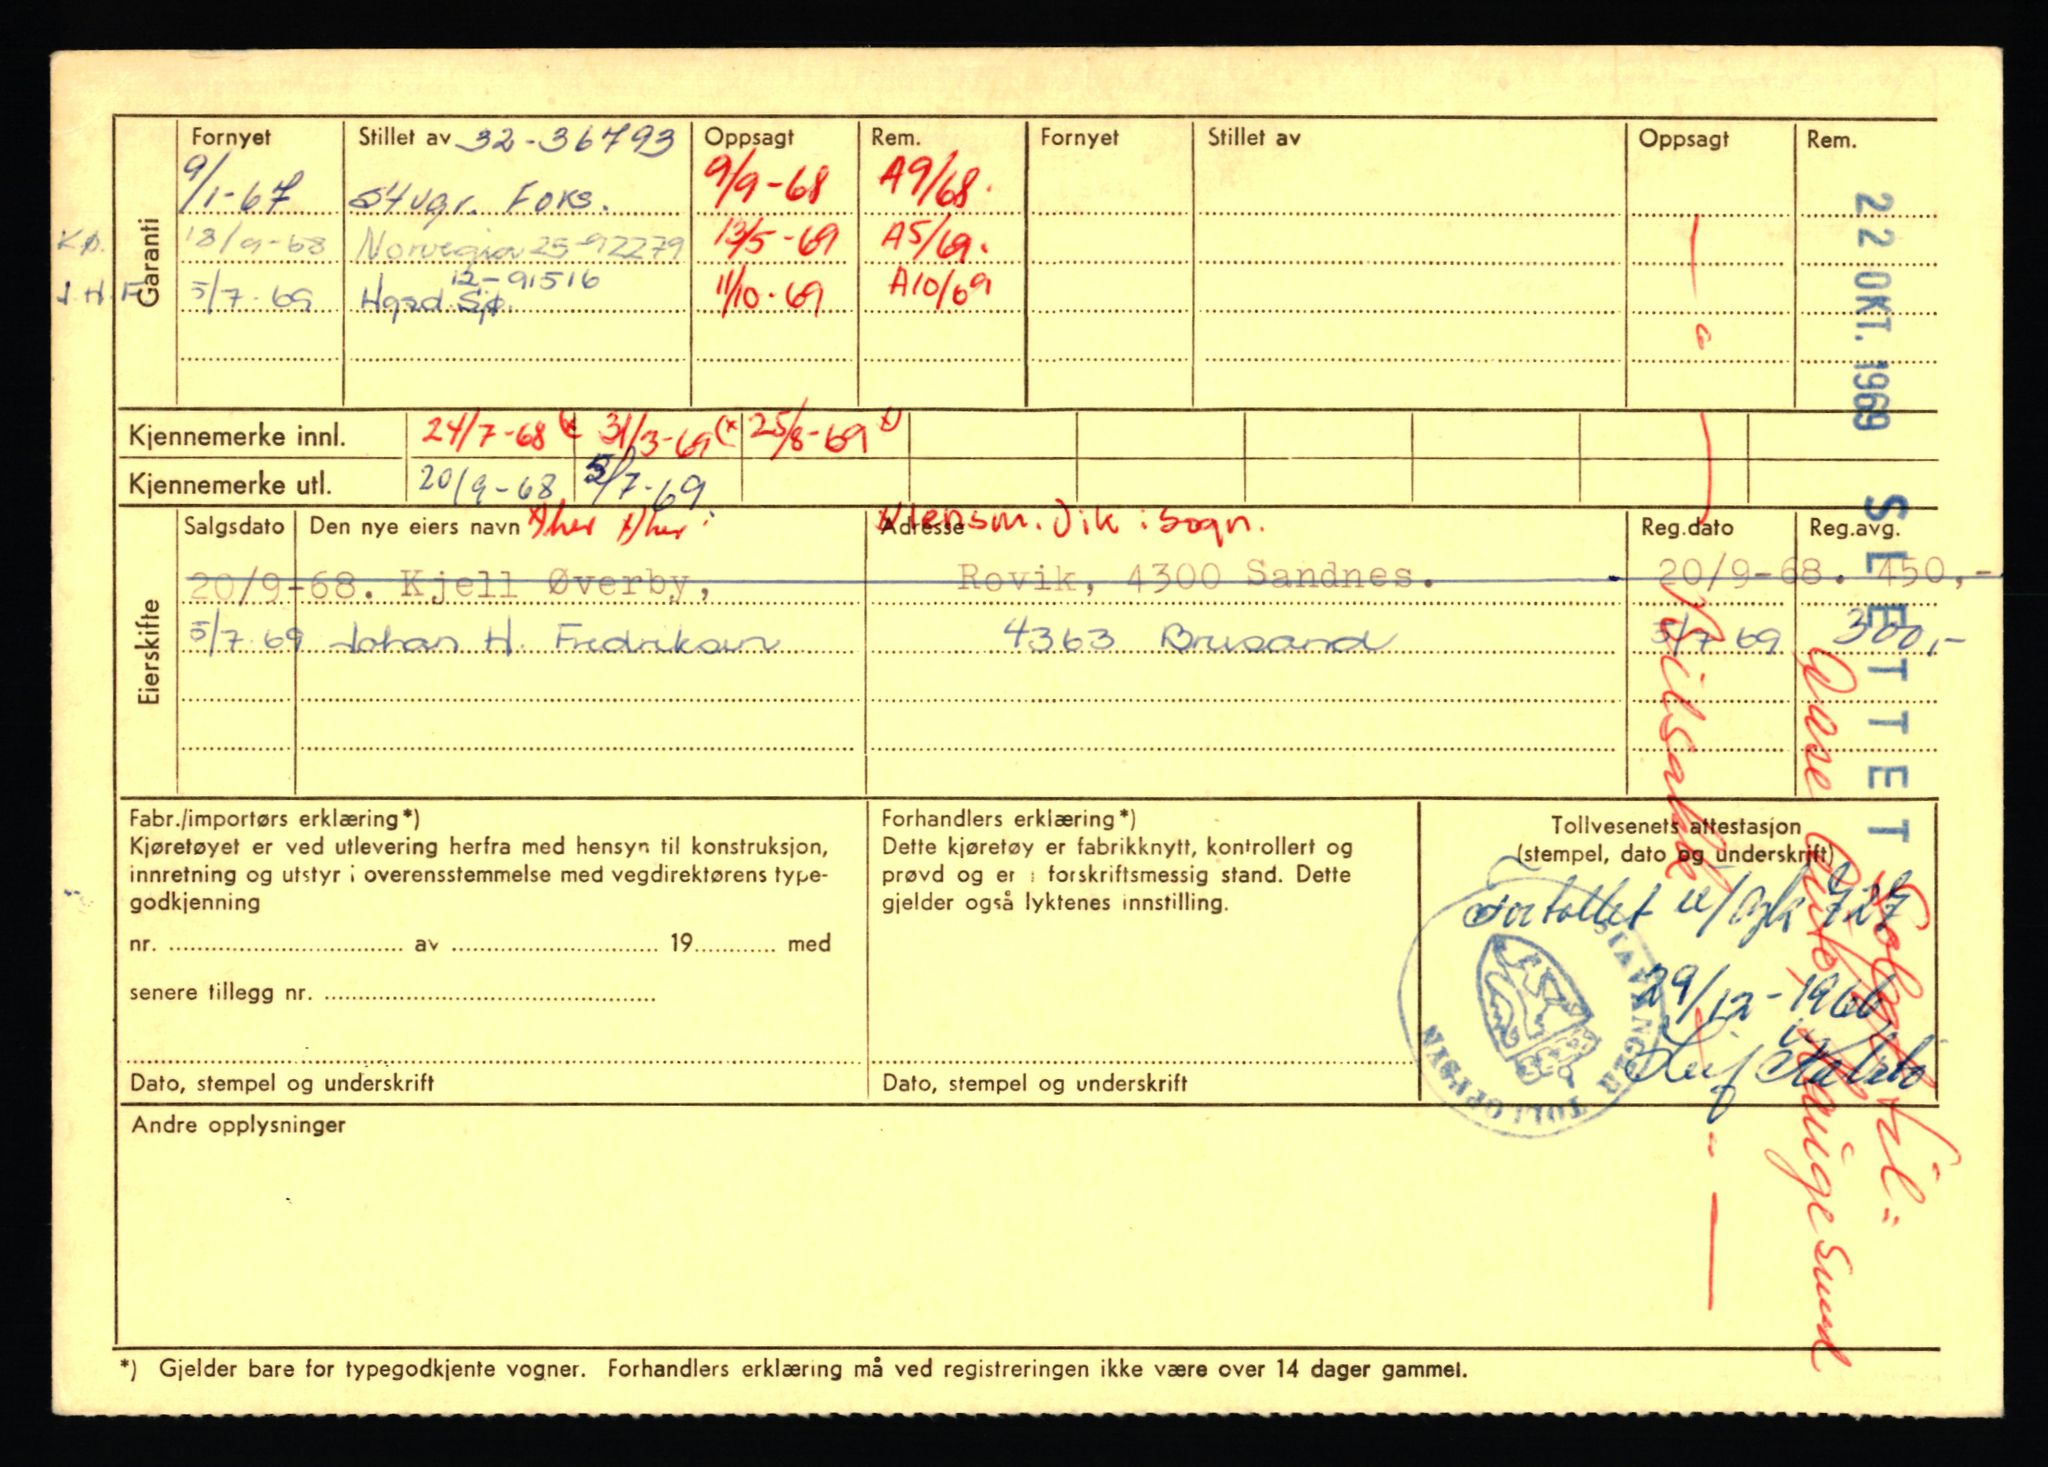 Garanti
Fornyet Stillet av 32-36793 Oppsagt Rem. Fornyet Stillet av Oppsagt Rem.
9/1-67 Stvgr. Foks. 9/9-68 A9/68.
K.Ø. 18/9-68 Norvegia 25-92279 13/5-69 A5/69.
12-91516
J.H.F. 5/7-69 Hgsd. Sjø. 11/10-69 A10/69
22 OKT. 1969 SLETTET
Kjennemerke innl. 24/7-68 (x 31/3-69 (x 25/8-69 x)
Kjennemerke utl. 20/9-68 5/7-69
Eierskifte
Salgsdato Den nye eiers navn x)her x)her Adresse x)lensm. Vik i Sogn. Reg.dato Reg.avg.
20/9-68. Kjell Øverby, Rovik, 4300 Sandnes. 20/9-68. 450,-
5/7 69 Johan H. Fredriksen 4363 Brusand 5/7 69 300,-
Vilsarkk
Solgt til =
Aase Auto, Haugesund
Fabr./importørs erklæring*)
Kjøretøyet er ved utlevering herfra med hensyn til konstruksjon,
innretning og utstyr i overensstemmelse med vegdirektørens type-
godkjenning
nr. av 19 med
senere tillegg nr.
Dato, stempel og underskrift
Forhandlers erklæring*)
Dette kjøretøy er fabrikknytt, kontrollert og
prøvd og er i forskriftsmessig stand. Dette
gjelder også lyktenes innstilling.
Dato, stempel og underskrift
Tollvesenets attestasjon
(stempel, dato og underskrift)
Fortollet 727
29/12-1966
Leif
STAVANGER TOLLOPPSYN
Andre opplysninger
*) Gjelder bare for typegodkjente vogner. Forhandlers erklæring må ved registreringen ikke være over 14 dager gammel.